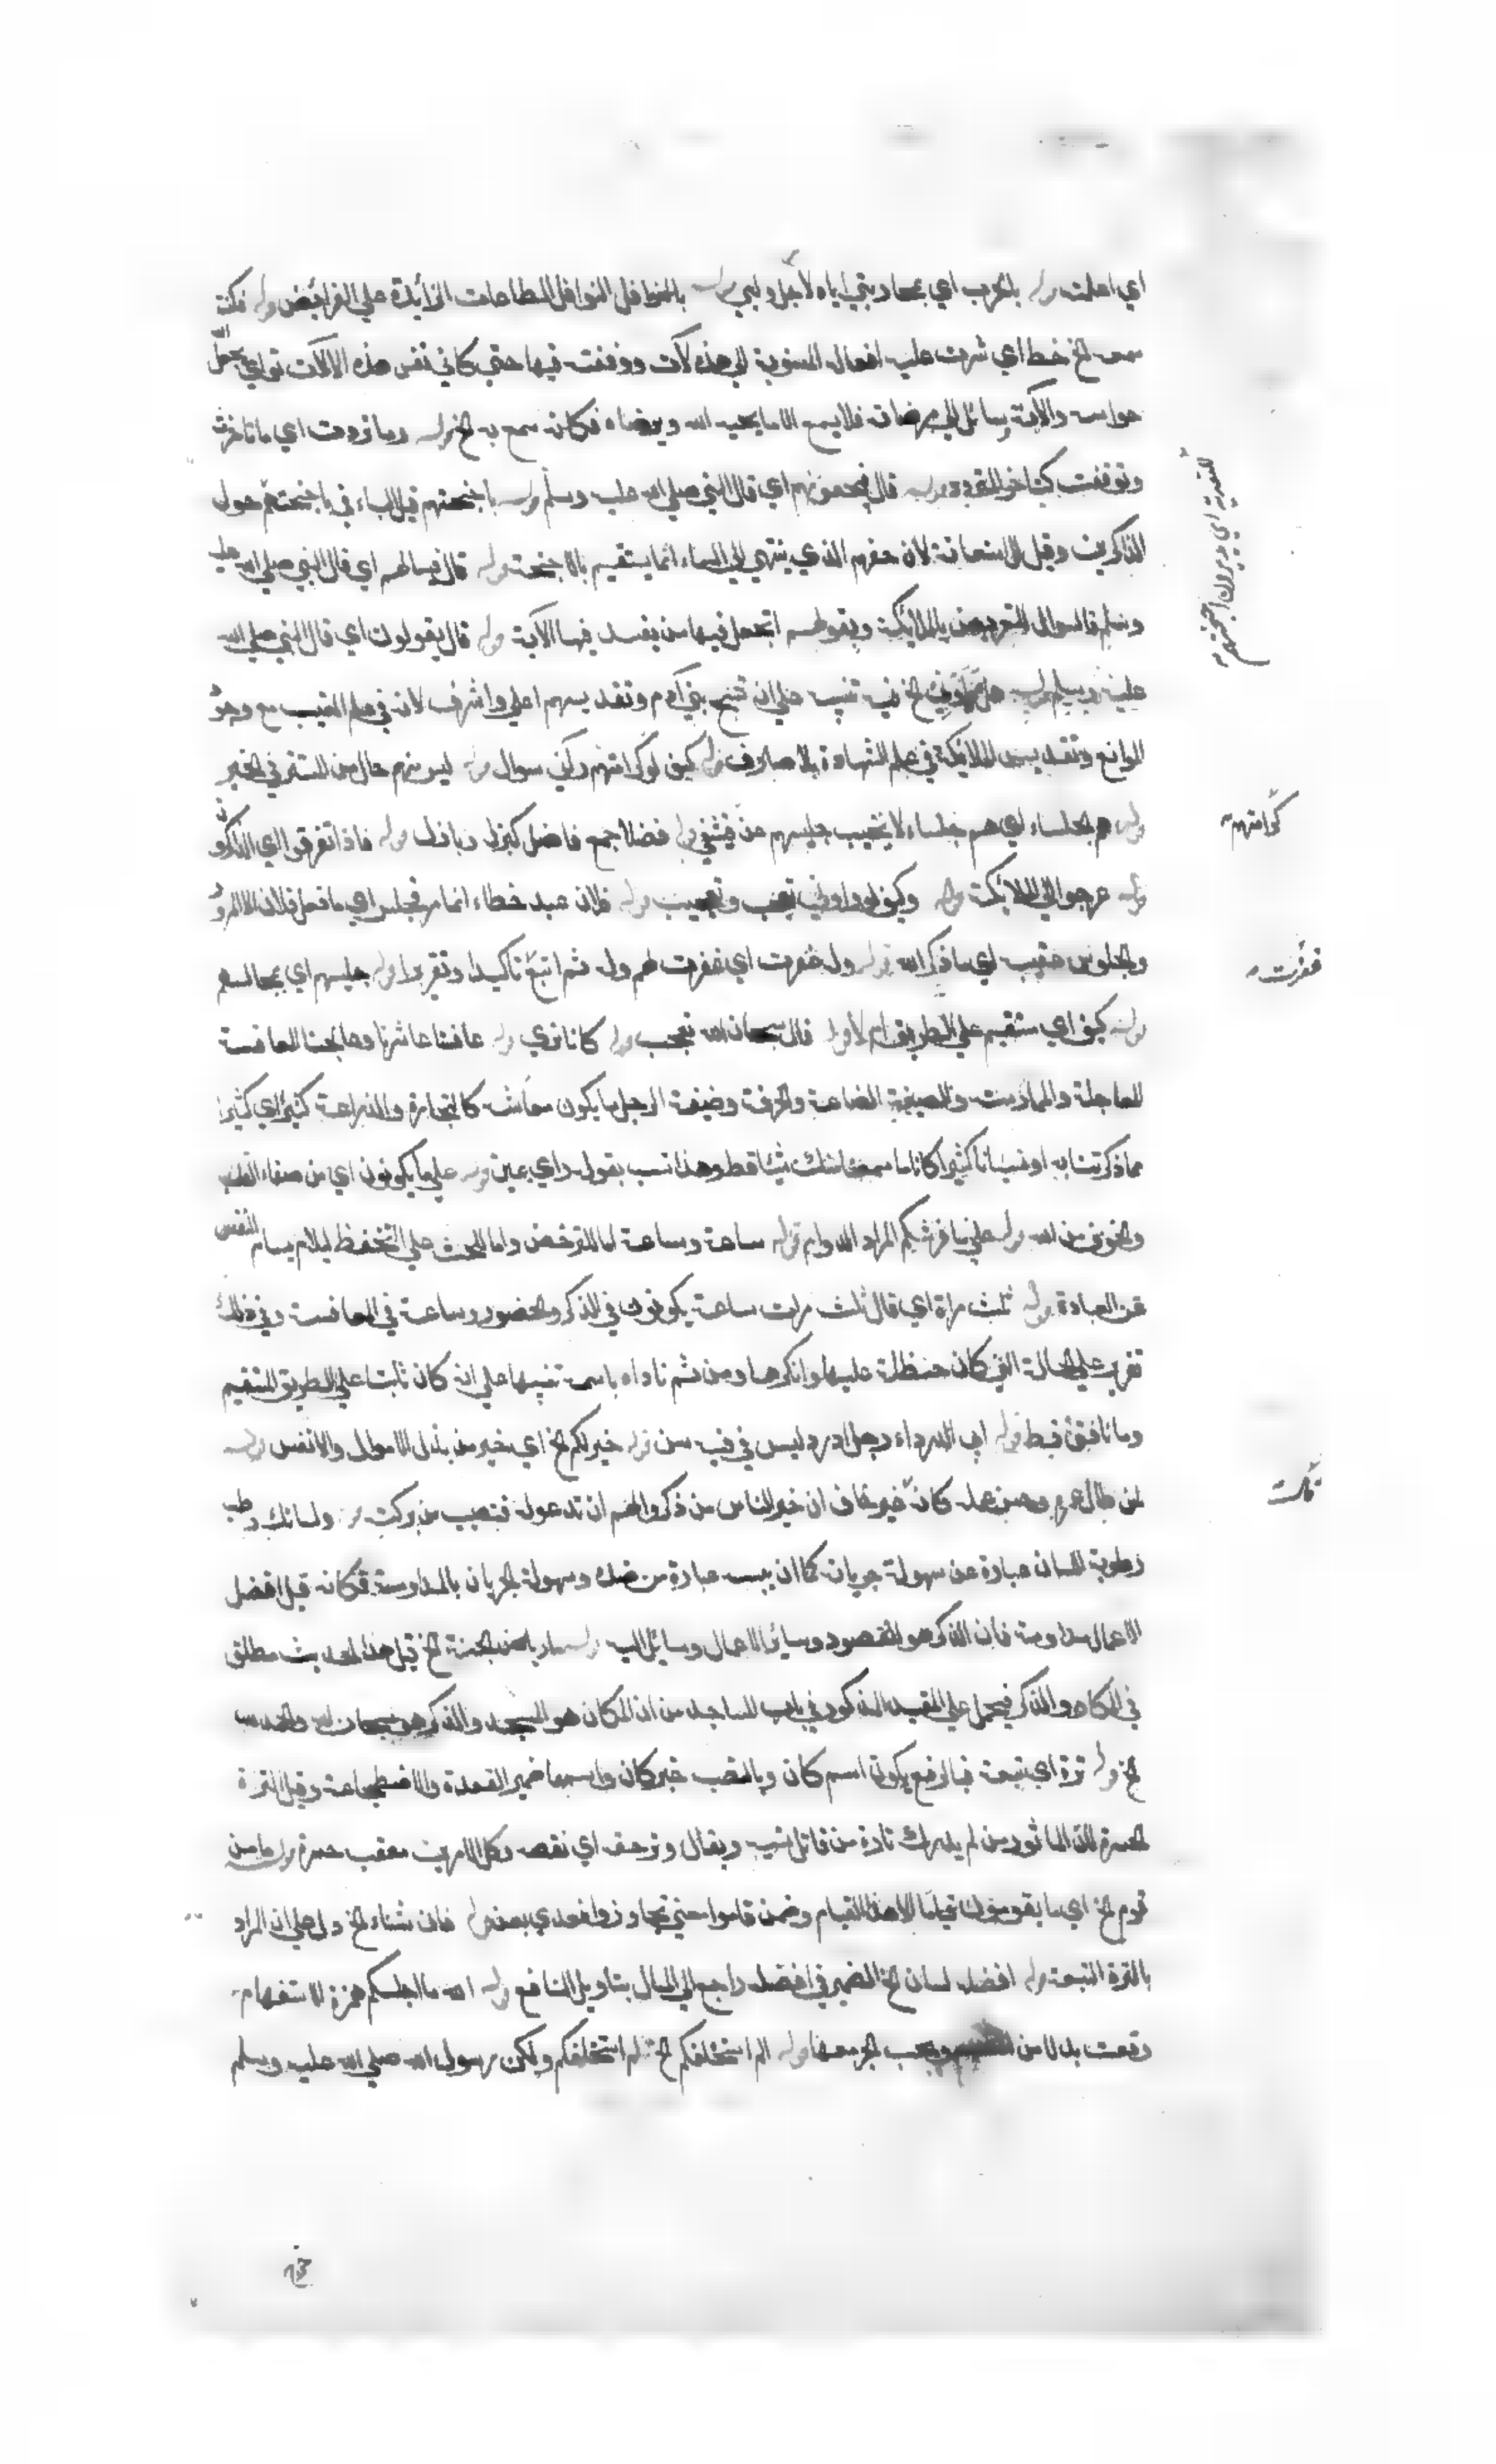 اي اعلمت قوله بالحرب اي بمحاربتي اياه لاجل وليي قوله بالنوافل النوافل الطاعات الزائدة علي الفرائض قوله فكنت
سمعه الخ خطا اي شرت عليه افعاله المنسوبة الي هذه لآت ووفقت فيها حتي كاني نفس هذه الالات قواي يجعل الله
حواسه والآته وسائل الي مرضاته فلا يسمع الا ما يحبه الله ويرضاه فكانه سمع به الخ قوله وما ترددت اي ما تاخرت
وتوقفت قوله قال فيحفونهم اي قال النبي صلي الله عليه وسلم قوله باجنحتهم قيل الباء في باجنحتهم حول
الذاكرين وقيل للاستعانة لان حفهم الذي ينتهي الي السماء انما يستقيم بالاجنحة قوله قال فيسالهم اي قال النبي صلي الله عليه
وسلم فالسوال للتعريض بالملائكة وبقولهم اتجعل فيها من يفسد فيها الآية قوله قال يقولون اي قال النبي صلي الله
عليه وسلم قوله هل راوني الخ فيه تنبيه علي ان تسبيح بني آدم وتقديسهم اعلي واشرف لانه في عالم الغيب مع وجود
الموانع وتقديس الملائكة في عالم الشهادة بلا صارف قوله كيف لو سوال قوله ليس منهم حال من المستتر في الخبر
قوله هم الجلساء اي هم جلساء لا يخيب جليسهم عن فيشقي قوله فضلا جمع فاضل كبزل وباذل قوله فاذا تفرقوا اي الذاكرون
قوله عرجوا اي الملائكة قوله وكيف لو راوني تعجب وتعجيب قوله فلان عبد خطاء انما مر فجلس اي ما فعل فلان الا المرور
والجلوس عقيبه اي ما ذكر الله قوله وله غفرت اي غفرت لهم وله ثم اتبع تاكيدا وتقريرا قوله جليسهم اي مجالسهم
قوله كيف اي مستقيم علي الطريق ام لا قوله قال سبحان الله تعجب قوله كانا نري قوله عافسنا عاشرنا وعالجنا المعافسة
المعاجلة والممارسة والضيعة الصناعة والحرفة وضيعة الرجل ما يكون معاشه كالتجارة والزراعة كثيرا اي كثيرا
مما ذكرتنا به او نسيانا كثيرا كانا ما سمعنا منك شيئا قط وهذا انسب بقوله راي عين قوله علي ما يكونون اي من صفاء القلب
والخوف من الله قوله علي فرشكم المراد الدوام قوله ساعة وساعة اما للترخص واما للحث علي التحفظ ليلا تسام النفس
عن العبادة قوله ثلث مراة اي قال ثلث مرات ساعة يكونون في الذكر والحضور وساعة في المعافسة وفي ذلك
تقرير علي الحالة التي كان حنظلة عليها وانكرها ومن ثم ناداه باسمه تنبيها علي انه كان ثابتا علي الطريق المستقيم
وما نافق قط قوله ابي الدرداء رجل ادرد ليس في فيه سن قوله خير لكم الخ اي خير من بذل الاموال والانفس قوله
لمن طال عمره وحسن عمله كانه ان خير الناس من ذكر والهم ان تدعوله فتصيب من بركته قوله ولسانك رطب
رطوبة اللسان عبارة عن سهولة جريانه كما ان يبسه عبارة من ضده وسهولة الجريان بالمداومة فكانه قيل افضل
الاعمال مداومة فان الذكر هو المقصود وسائر الاعمال وسائل اليه قوله رياض الجنة الخ قيل هذا الحديث مطلق
في المكان والذكر فيحمل علي المقيد المذكور في باب المساجد من ان المكان هو المسجد والذكر هو سبحان الله والحمد لله
الخ قوله ترة اي تبعة فبالرفع يكون اسم كان وبالنصب خبر كان واسمها ضمير القعدة والاضطجاعة وقيل الترة
الحسرة لان الماثور من لم يدرك ثاره من قاتل نسيبه ويقال وتر حقه اي نقصه وكلا الامرين معقب حسرة قوله ما من
قوم الخ اي ما يقومون قياما الا هذا القيام وضمن قاموا معني تجاوزوا فعدي بعن قوله فان شاء الخ دل علي ان المراد
بالترة التبعة قوله افضله لسان الخ الضمير في افضله راجع الي المال بتاويل النافع قوله الله ما اجلسكم همزة الاستفهام
وقعت بدلا من ويجب الجر معها قوله اما اني لم استحلفكم الخ لم استحلفكم ولكن رسول الله صلي الله عليه وسلم
للتعدية اي يديرون اجنحتهم
كرامتهم
غفرت